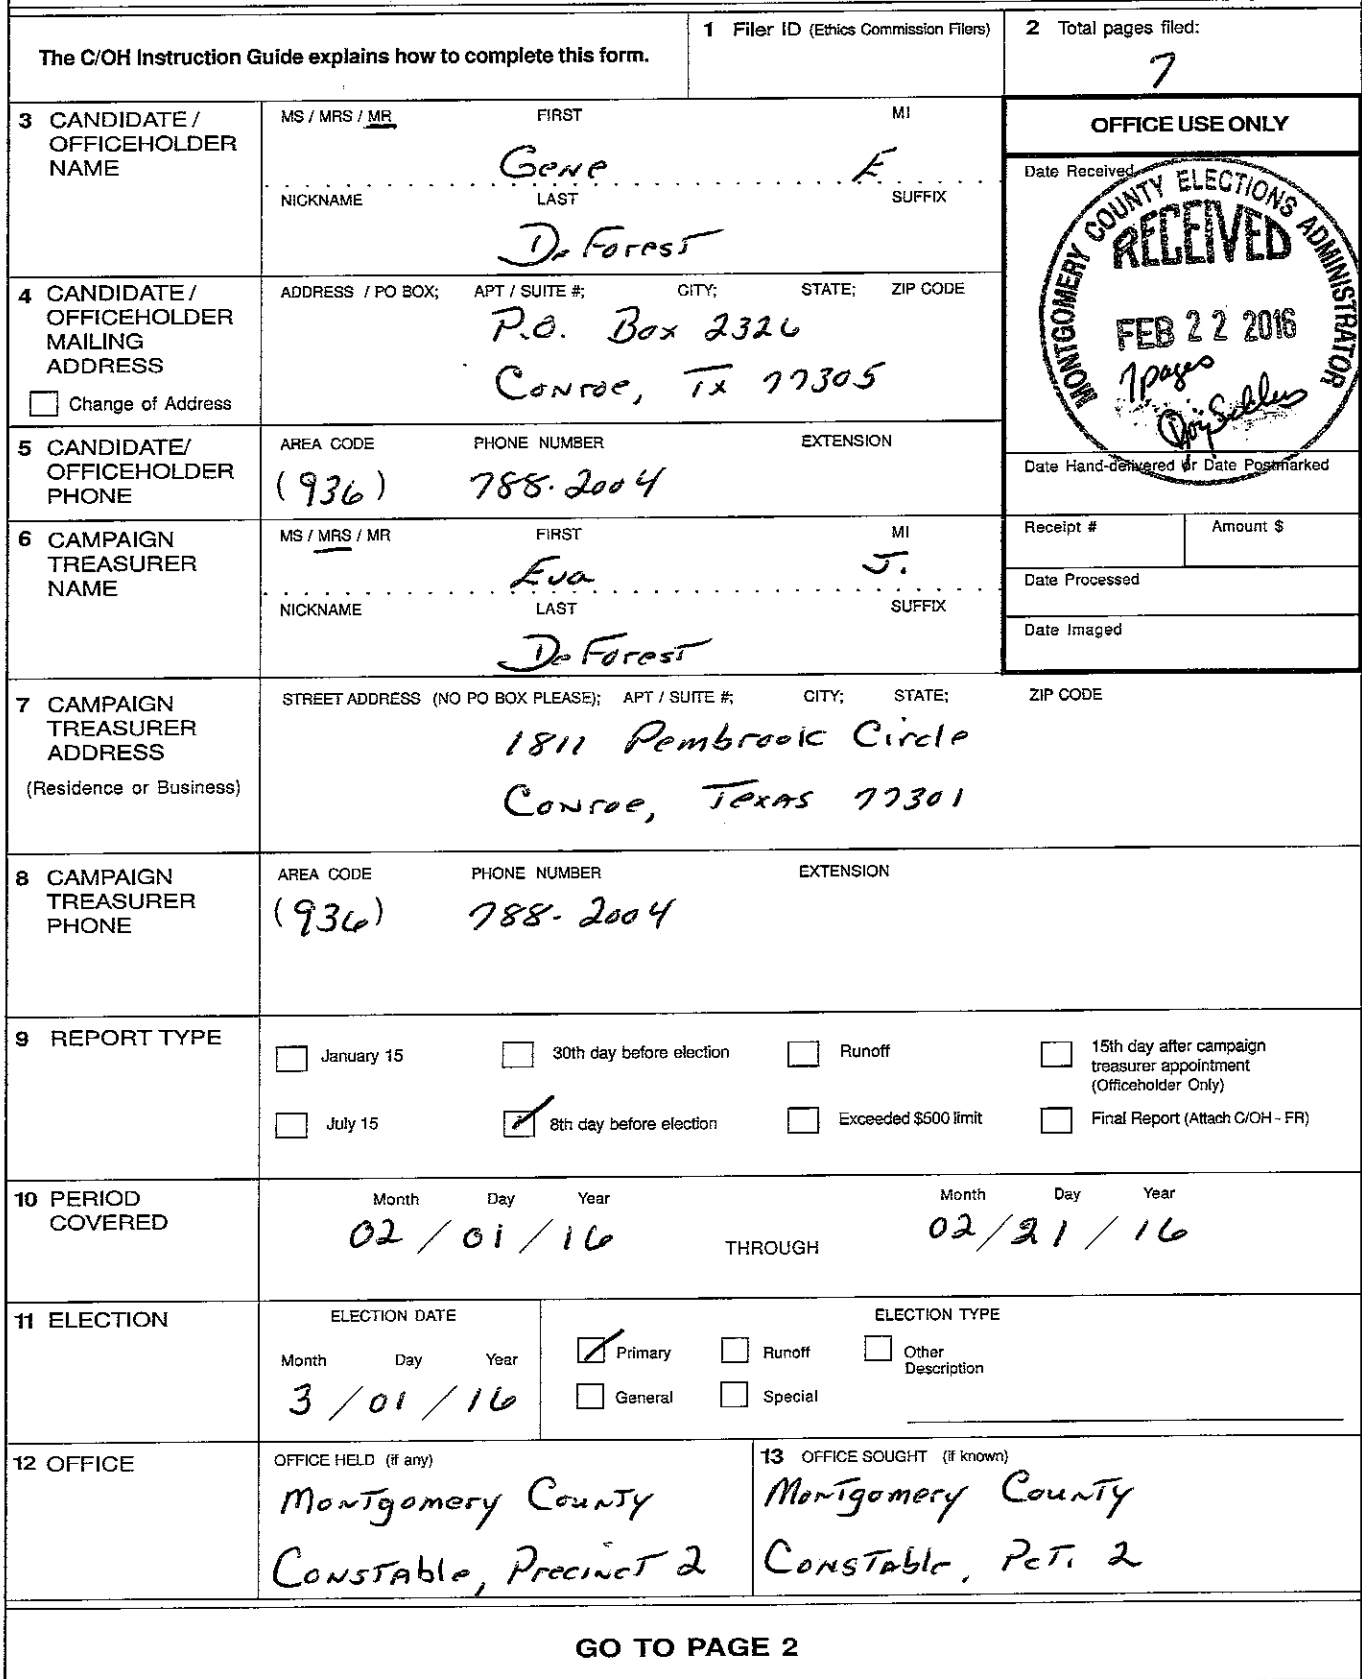 The C/OH Instruction Guide explains how to complete this form.
1 Filer ID (Ethics Commission Filers)
2 Total pages filed:
7
3 CANDIDATE / OFFICEHOLDER NAME
MS / MRS / MR FIRST MI
Gene E
NICKNAME LAST SUFFIX
DeForest
OFFICE USE ONLY
Date Received
MONTGOMERY COUNTY ELECTIONS ADMINISTRATOR
RECEIVED
FEB 22 2016
7 pages
Date Hand-delivered or Date Postmarked
Receipt # Amount $
Date Processed
Date Imaged
4 CANDIDATE / OFFICEHOLDER MAILING ADDRESS
Change of Address
ADDRESS / PO BOX; APT / SUITE #; CITY; STATE; ZIP CODE
P.O. Box 2326
Conroe, Tx 77305
5 CANDIDATE/ OFFICEHOLDER PHONE
AREA CODE PHONE NUMBER EXTENSION
(936) 788-2004
6 CAMPAIGN TREASURER NAME
MS / MRS / MR FIRST MI
Eva J.
NICKNAME LAST SUFFIX
DeForest
7 CAMPAIGN TREASURER ADDRESS
(Residence or Business)
STREET ADDRESS (NO PO BOX PLEASE); APT / SUITE #; CITY; STATE; ZIP CODE
1811 Pembrook Circle
Conroe, Texas 77301
8 CAMPAIGN TREASURER PHONE
AREA CODE PHONE NUMBER EXTENSION
(936) 788-2004
9 REPORT TYPE
January 15 30th day before election Runoff 15th day after campaign treasurer appointment (Officeholder Only)
July 15 8th day before election Exceeded $500 limit Final Report (Attach C/OH - FR)
10 PERIOD COVERED
Month Day Year Month Day Year
02 / 01 / 16 THROUGH 02 / 21 / 16
11 ELECTION
ELECTION DATE
Month Day Year
3 / 01 / 16
ELECTION TYPE
Primary Runoff Other Description
General Special
12 OFFICE
OFFICE HELD (if any)
Montgomery County
Constable, Precinct 2
13 OFFICE SOUGHT (if known)
Montgomery County
Constable, Pct. 2
GO TO PAGE 2